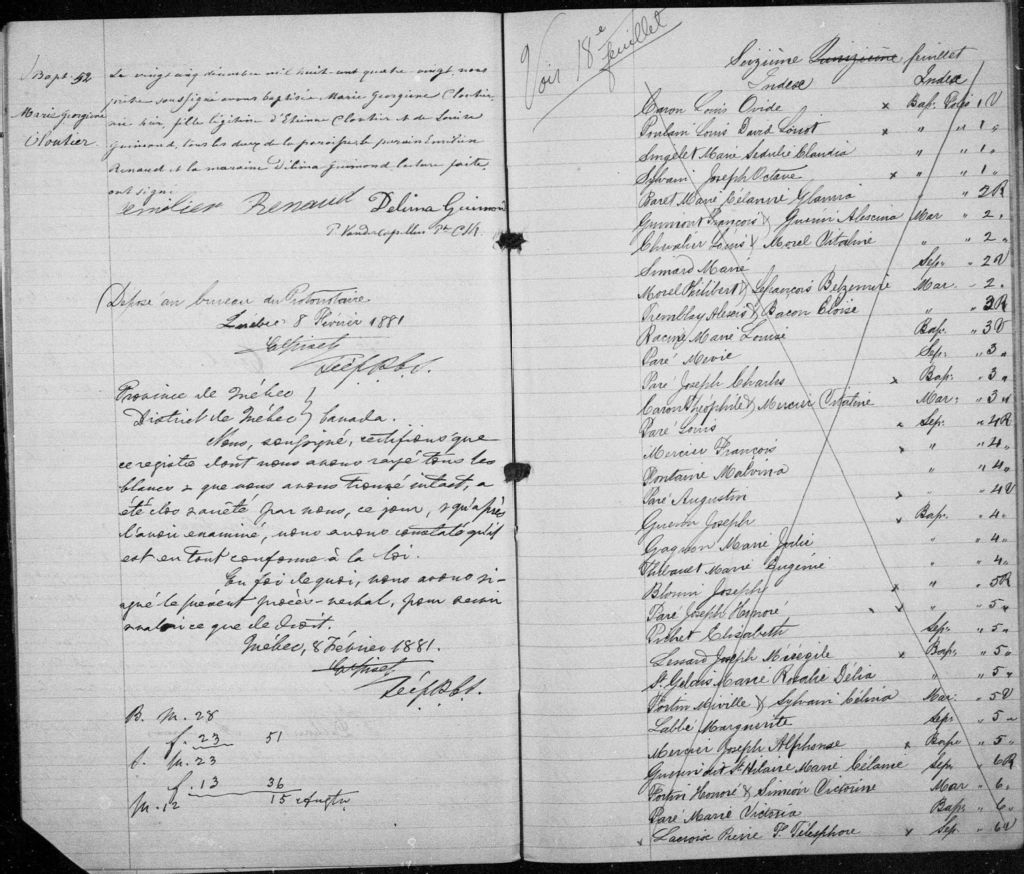 Bapt. 52
Marie Georgiene
Cloutier
Le vingt cinq décembre mil huit-cent quatre-vingt, nous
prêtre soussigné avons baptisée Marie Georgiene Cloutier,
née hier, fille légitime d'Etienne Cloutier et de Louise
Guimond, tous les deux de la paroisse le parain Emilien
Renaud et la maraine Delima Guimond lecture faite
ont signé
emilien Renaud Delima Guimond
P. Vandecapellen Ptre
Déposé au bureau du Protonotaire
Québec 8 Février 1881
Province de Québec
District de Québec } Canada.
Nous, soussigné, certifions que
ce registre dont nous avons rayé tous les
blancs & que nous avons trouvé intact, a
été clos & arrêté par nous, ce jour, & qu'après
l'avoir examiné, nous avons constaté qu'il
est en tout conforme à la loi.
En foi de quoi, nous avons si-
gné le présent procès-verbal, pour servir
valoir ce que de droit.
Québec, 8 Février 1881.
B. M. 28
f. 23 51
M. 23
f. 13 36
M. 12 15
Voir 18e
feuillet
Seizième feuillet
Index Index
Caron Louis Ovide x Bap. Folio 1 V
Poulain Louis David x " " 1 "
Singelet Marie Sedulie Claudia " " 1 "
Sylvain Joseph Octave x " " 1 "
Paret Marie Célanire " 2 R
Guimont François & Guerin Mar " 2 "
Chevalier Louis & Morel Vitaline " " 2 "
Simard Marie Sep. " 2 V
Morel Philibert & Lefrançois Belzemire Mar. " 2 "
Tremblay Alexis & Bacon Eloïse " " 3 R
Racine Marie Louise Bap. " 3 V
Paré Sep. " 3 "
Paré Joseph Charles x Bap. " 3 "
Caron Théophile & Mercier Vitaline Mar. " 3 "
Paré Louis x Sep. " 4 R
Mercier François x " " 4 "
Fontaine Malvina " " 4 "
Paré Augustin x " " 4 V
Guerin Joseph x Bap. " 4 "
Gagnon Marie Julie " " 4 "
Thibault Marie Eugénie " " 4 "
Blouin Joseph x " " 5 R
Paré Joseph Honoré x " " 5 "
Pichet Elisabeth Sep. " 5 "
Lessard Joseph x Bap. " 5 "
St. Gelais Marie Rosalie Délia " " 5 "
Fortin Miville & Sylvain Célina Mar. " 5 V
Labbé Marguerite Sep. " 5 "
Mercier Joseph Alphonse x Bap. " 5 "
Guerin dit St. Hilaire Marie Célanie Sep. " 6 R
Fortin Honoré & Simeon Victorine Mar " 6 "
Paré Marie Victoria Bap. " 6 "
x Lacroix Pierre T. Télesphore x Sep. " 6 V